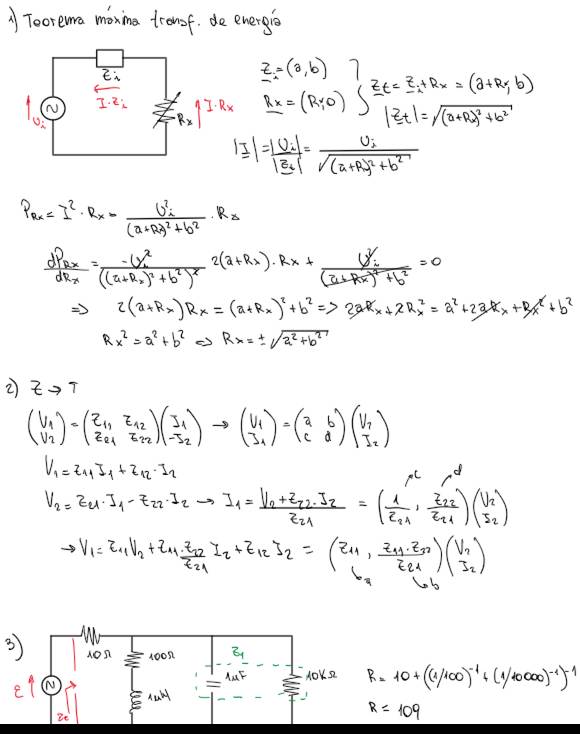 1) Teorema máxima transf. de energía
Zi
I·Zi
Ui
Rx
I·Rx
Zi = (a, b)
Rx = (Rx, 0)
Zt = Zi + Rx = (a+Rx, b)
|Zt| = √((a+Rx)² + b²)
|I| = |Ui| / |Zt| = Ui / √((a+Rx)² + b²)
PRx = I² · Rx = Ui² / ((a+Rx)² + b²) · Rx
dPRx/dRx = -Ui² / ((a+Rx)² + b²)² 2(a+Rx)·Rx + Ui² / ((a+Rx)² + b²) = 0
=> 2(a+Rx)Rx = (a+Rx)² + b² => 2aRx + 2Rx² = a² + 2aRx + Rx² + b²
Rx² = a² + b² <=> Rx = ± √(a² + b²)
2) Z → T
(V1 V2) = (Z11 Z12 Z21 Z22)(I1 -I2) → (V1 I1) = (a b c d)(V2 I2)
V1 = Z11 I1 + Z12 · I2
V2 = Z21 · I1 - Z22 · I2 → I1 = (V2 + Z22 · I2) / Z21 = (1/Z21, Z22/Z21)(V2 I2)
c d
→ V1 = Z11 V2 + Z11 · Z22/Z21 I2 + Z12 I2 = (Z11, Z11·Z22/Z21)(V2 I2)
a b
3)
10Ω
100Ω
Z1
1μF
10KΩ
ε
1mH
Ze
R = 10 + ((1/100)⁻¹ + (1/10000)⁻¹)⁻¹
R = 109